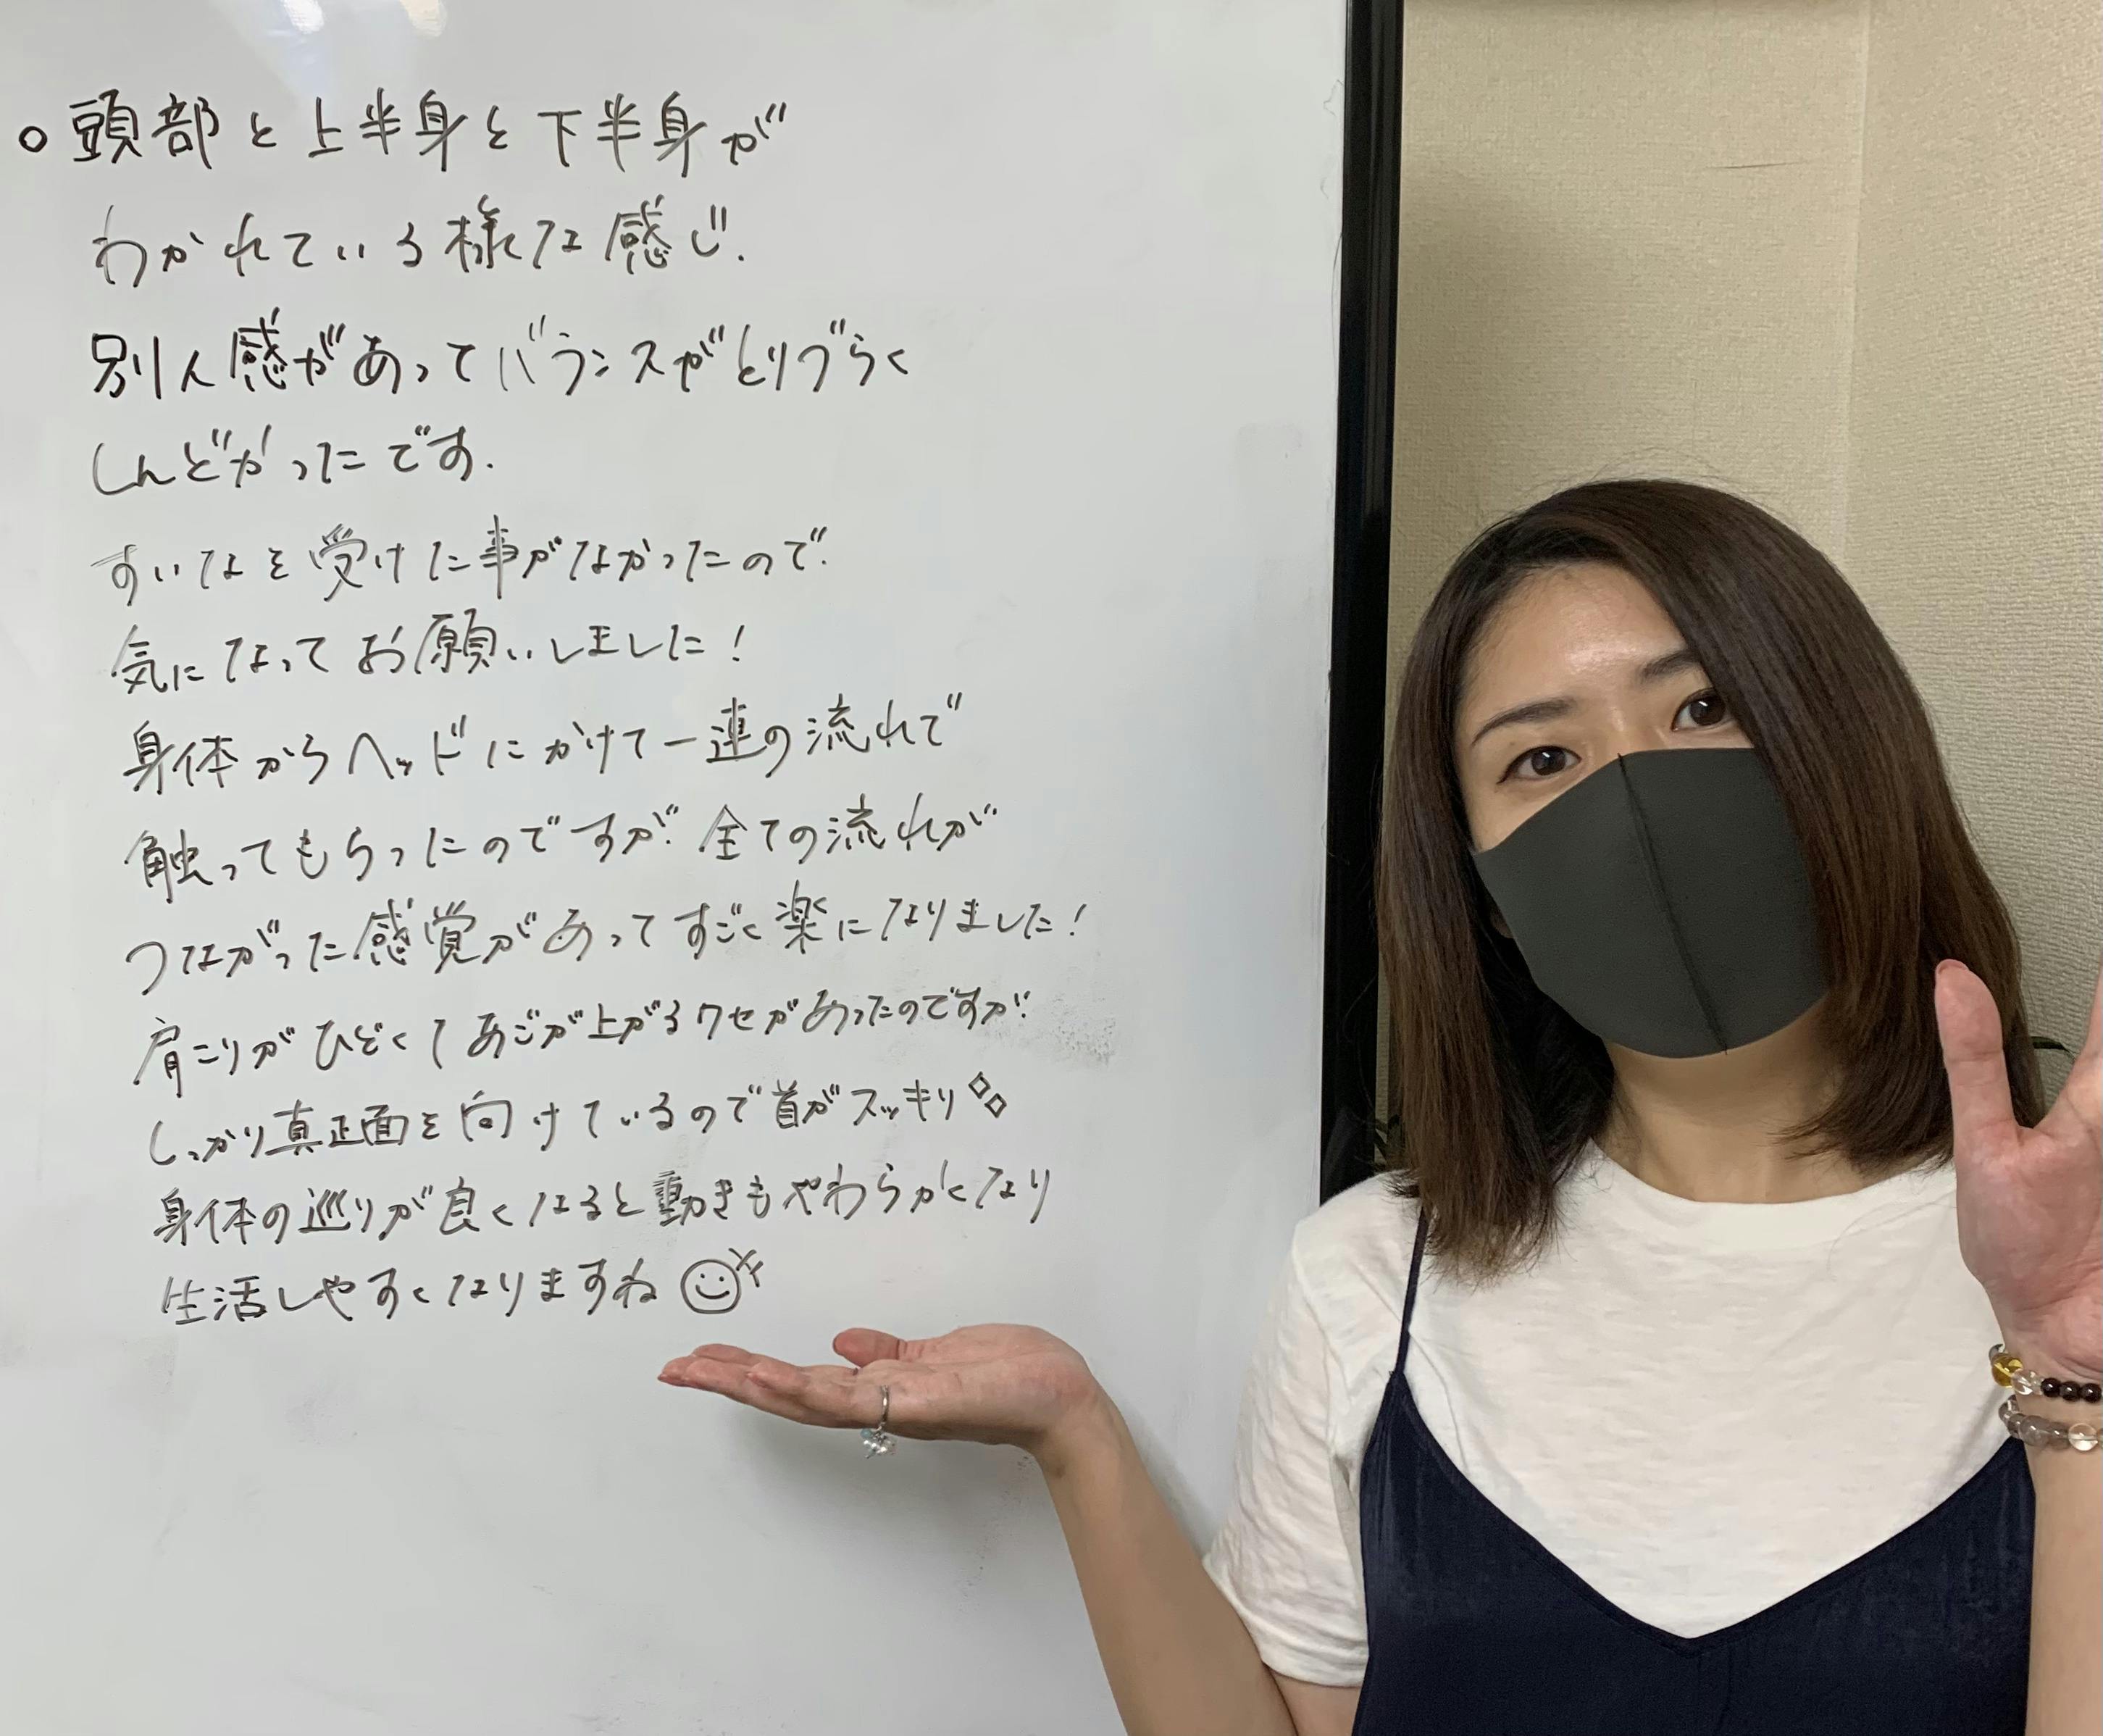 ○頭部と上半身と下半身が
わかれている様な感じ.
別人感があってバランスがとりづらく
しんどかったです.
すいなを受けた事がなかったので
気になってお願いしました!
身体からヘッドにかけて一連の流れで
触ってもらったのですが 全ての流れが
つながった感覚があってすごく楽になりました!
肩こりがひどくてあごが上がるクセがあったのですが
しっかり真正面を向けているので首がスッキリ
身体の巡りが良くなると動きもやわらかくなり
生活しやすくなりますね